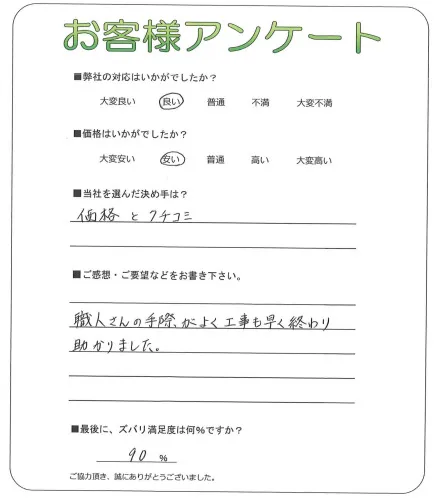 お客様アンケート
■弊社の対応はいかがでしたか?
大変良い 良い 普通 不満 大変不満
■価格はいかがでしたか?
大変安い 安い 普通 高い 大変高い
■当社を選んだ決め手は?
価格とクチコミ
■ご感想・ご要望などをお書き下さい。
職人さんの手際がよく工事も早く終わり
助かりました。
■最後に、ズバリ満足度は何%ですか?
90 %
ご協力頂き、誠にありがとうございました。